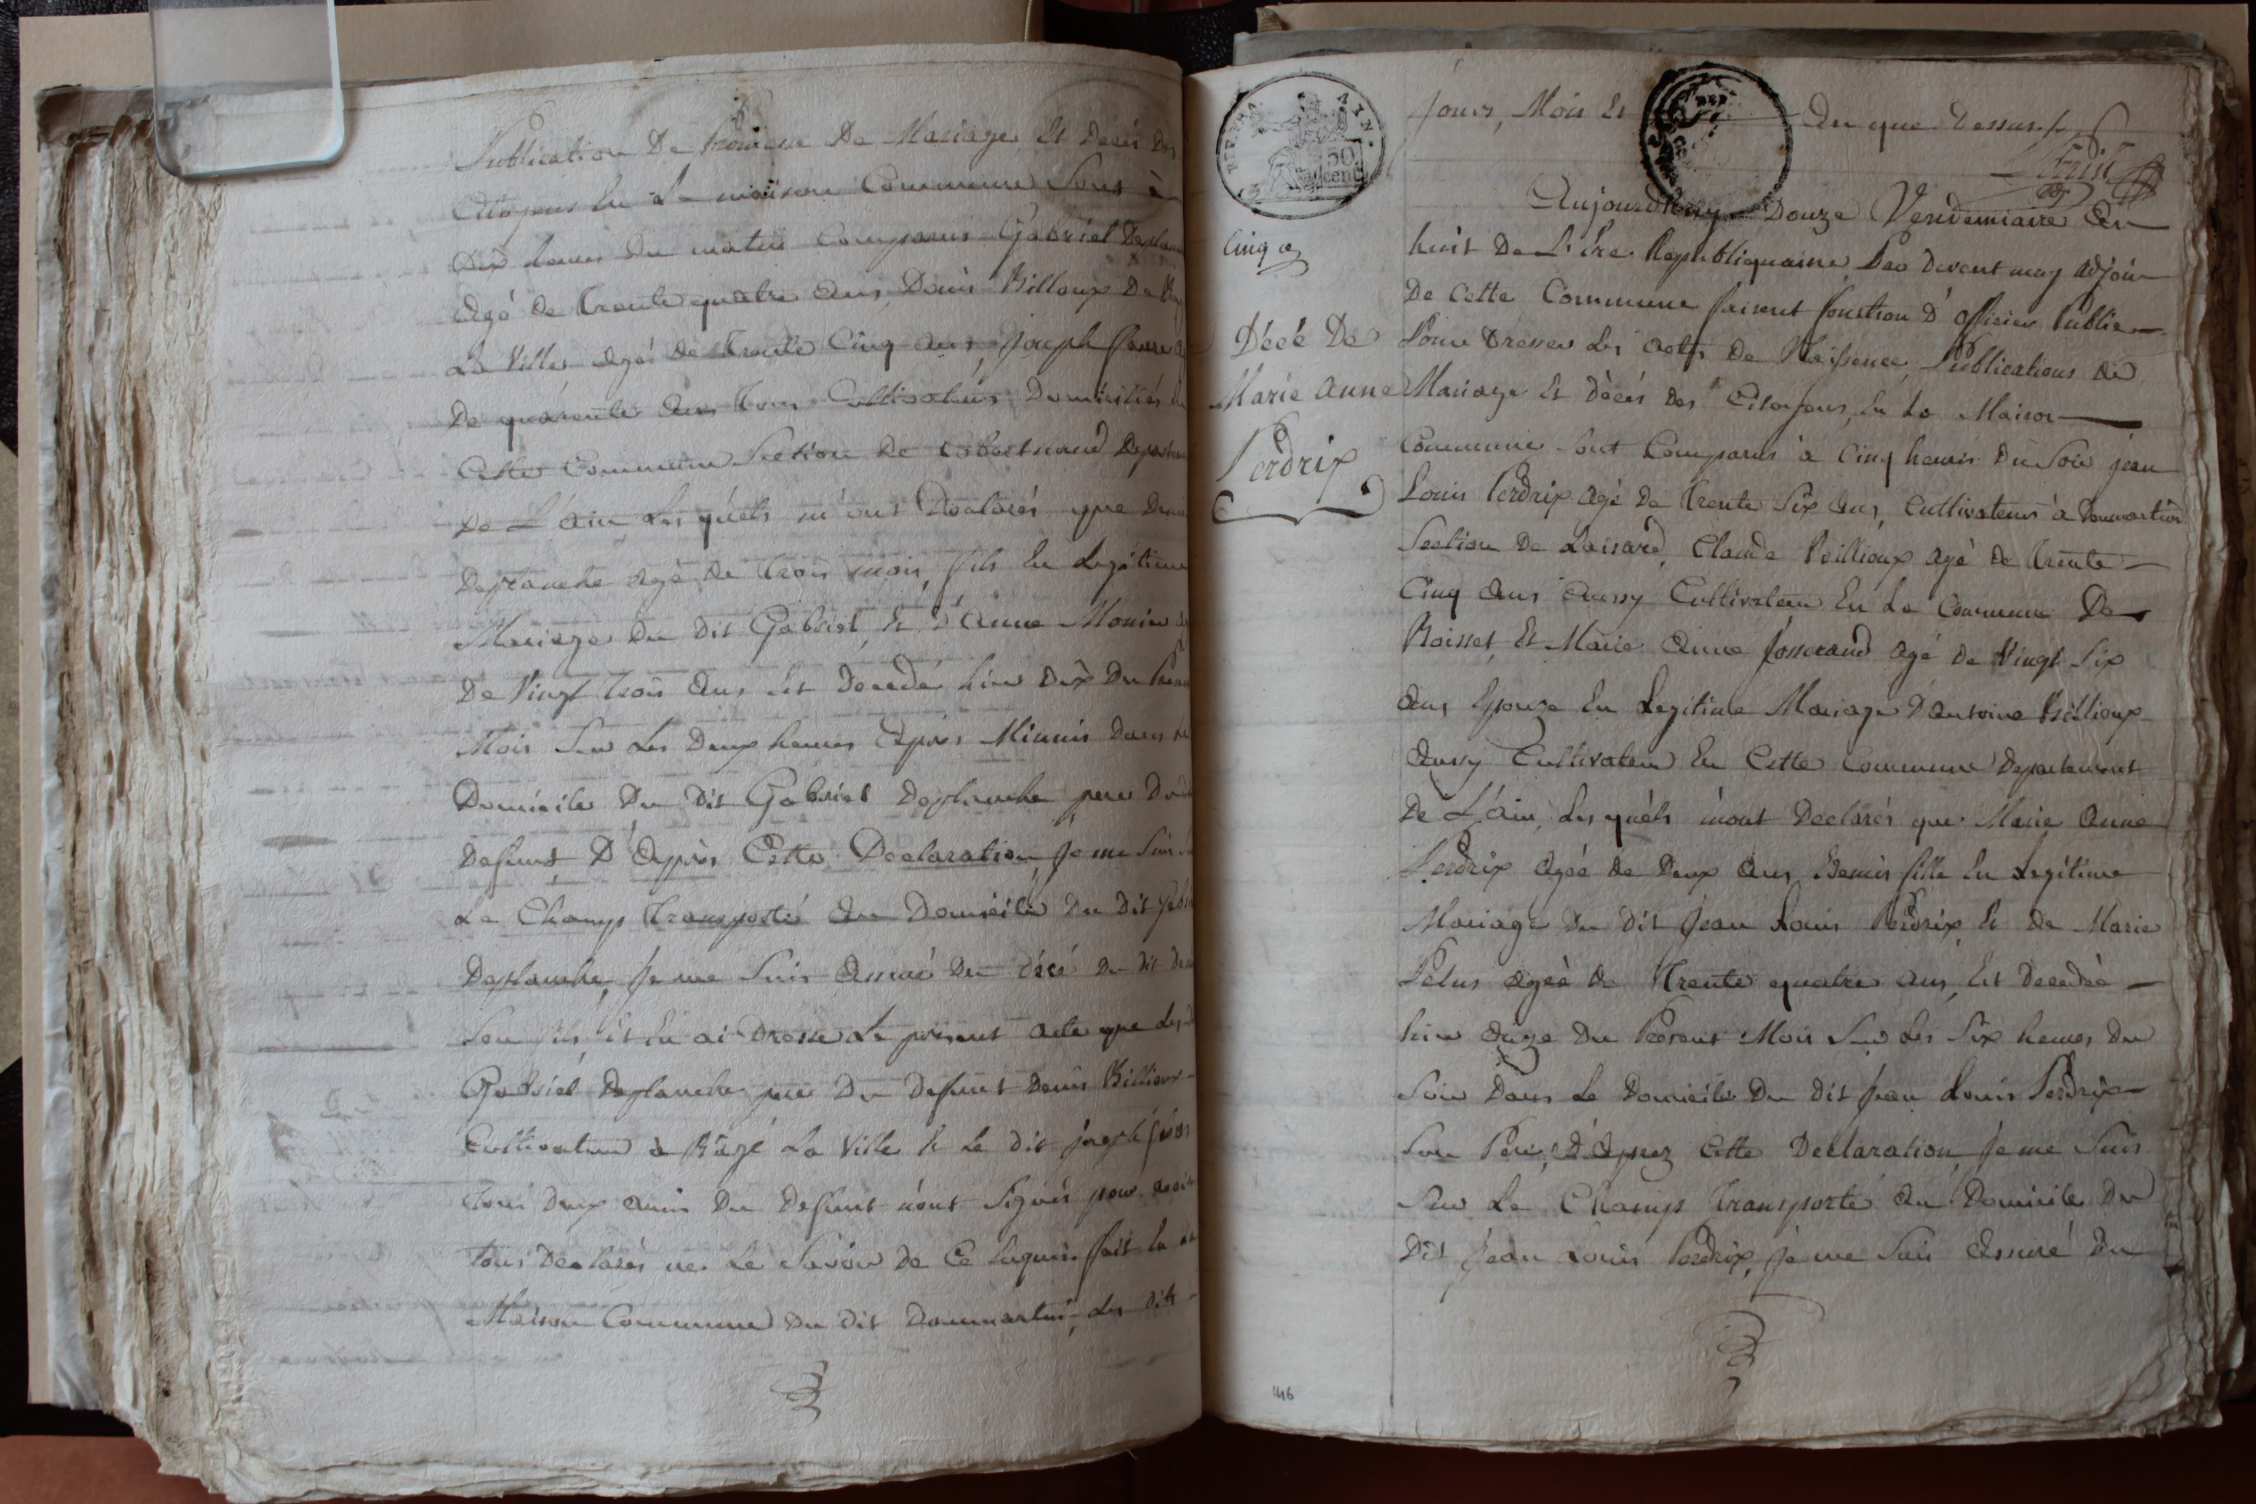 Publication De Promesse De Mariage, Et Decés Des
Citoyens En La maison Commune Sont à
Dix heures Du matin Comparus Gabriel Deplanche
Agé de Trente quatre ans, Denis Billoux De
La Ville agé de Trente Cinq ans, Joseph
De quarente ans Tous Cultivateurs Domiciliés
Cette Commune Section de Departement
De L'ain Les quéls m'ont Déclarés que Denis
Deplanche agé De Trois mois, fils En Legitime
Mariage Du Dit Gabriel, Et D'anne Monin
De Vingt Trois ans Est Decedé hier Dix Du Present
Mois Sur Les Deux heures Après Minuis Dans Le
Domicile Du Dit Gabriel Deplanche, pere Du
Defunt, D'Après Cette Declaration Je me Suis
Le Champs Transporté Au Domicile Du Dit Gabriel
Deplanche, Je me Suis Assuré Du décé Du Dit Denis
Son fils, Et En ai Dressé Le présent Acte que Les
Gabriel Deplanche pere Du Defunt Denis Billioux
Cultivateur à Bâgé La Ville Et Le Dit joseph
Tous Deux amis Du Defunt n'ont Signés pour avoir
Tous Déclarés ne Le Savoir De Ce Enquis fait En La
Maison Commune Du Dit Dommartin, Les Dits
Jours, Mois Et An que Dessus
Cinq
50 cent
Décé De
Marie Anne
Perdrix
Aujourdhuy Douze Vendemiaire An
huit De L'Ere Republiquaine, Par Devent moy Adjoin
De Cette Commune faisent fonction D'officier Public
Pour Dresser Les Actes De Naissence, Publications De
Mariage Et Décés Des Citoyens, En La Maison
Commune Sont Comparus à Cinq heures Du Soir jean
Louis Perdrix Agé De Trente Six Ans, Cultivateur à Dommartin
Section De Loisard, Claude Billioux Agé De Trente
Cinq Ans Aussy Cultivateur En La Commune De
Boisset, Et Marie Anne Josserand Agé De Vingt Six
Ans Epouze En Legitime Mariage D'antoine Billioux
Aussy Cultivateur En Cette Commune Departement
De L'ain, Les quéls m'ont Declarés que Marie Anne
Perdrix Agée De Deux Ans Demis fille En Legitime
Mariage Du Dit Jean Louis Perdrix, Et De Marie
Pelus Agée De Trente quatre ans, Est Decedée
hier Onze Du Present Mois Sur Les Six heures Du
Soir Dans Le Domicile Du Dit Jean Louis Perdrix
Son Pere, D'Aprez Cette Declaration, Je me Suis
Sur Le Champs Transporté Au Domicile Du
Dit Jean Louis Perdrix, Je me Suis Assuré Du
146